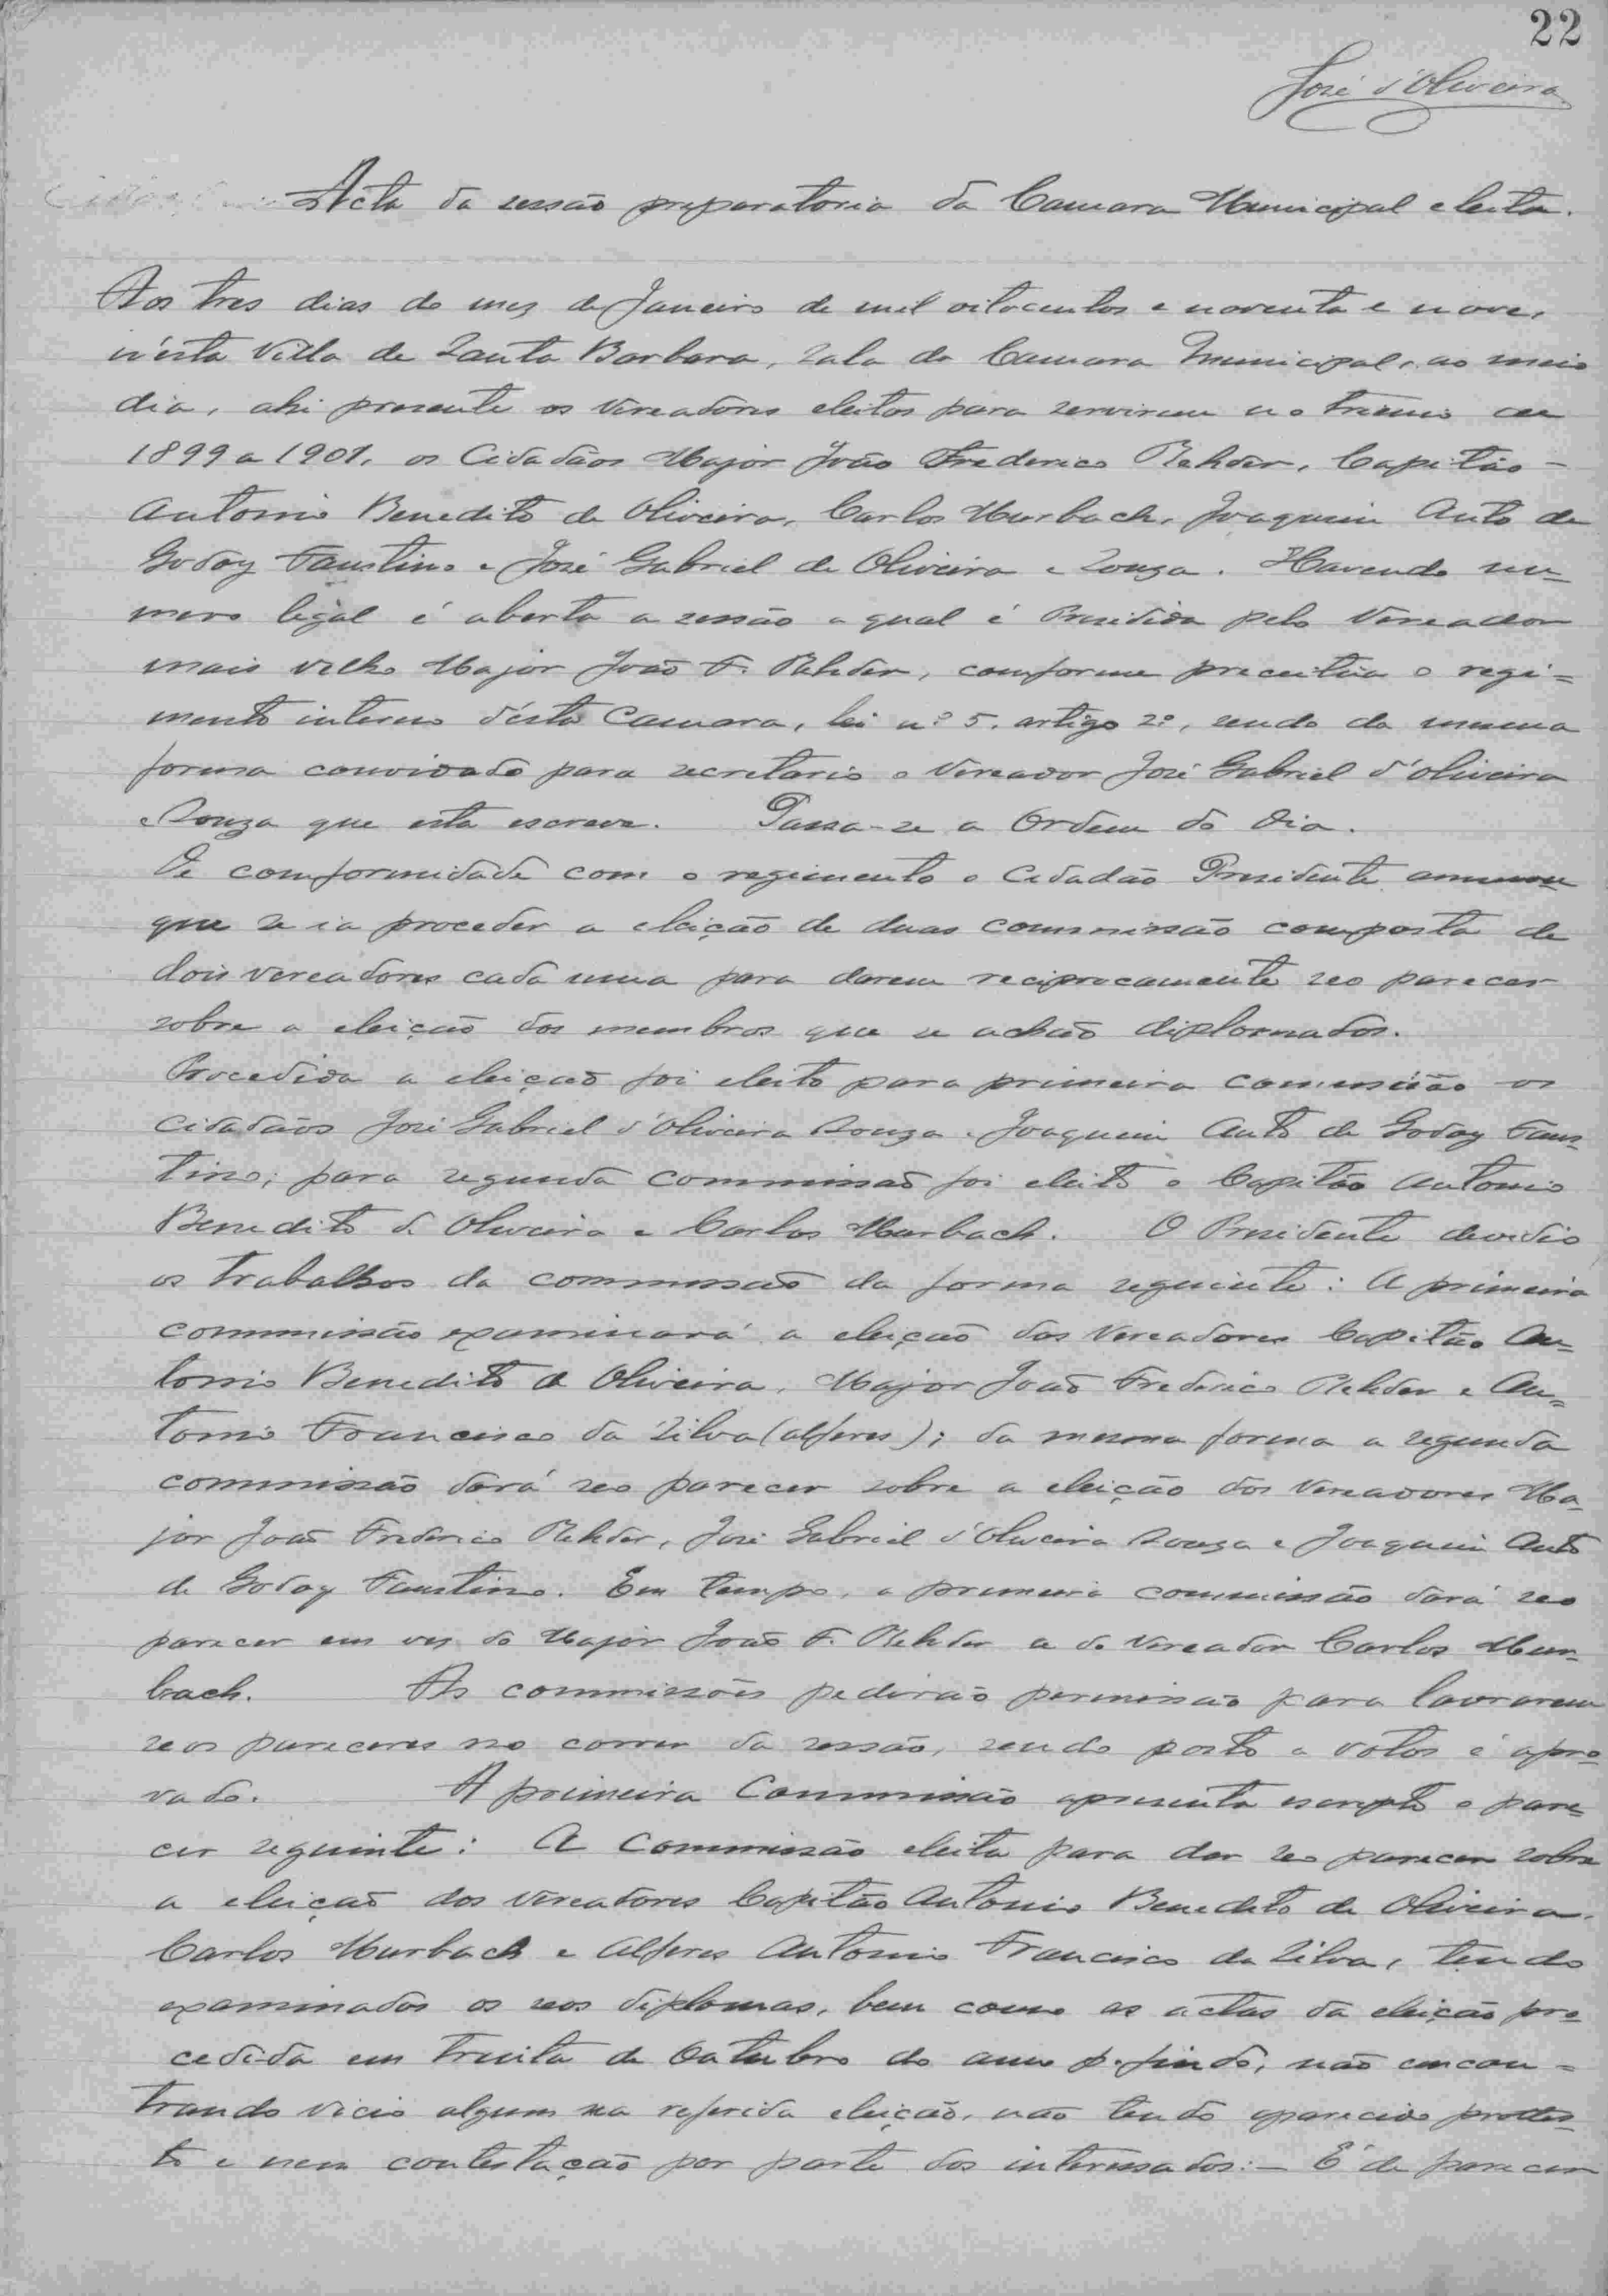 22
José d'Oliveira
Acta da sessão preparatoria da Camara Municipal eleita.
Aos tres dias do mez de Janeiro de mil oitocentos e noventa e nove,
n'esta Villa de Santa Barbara, sala da Camara Municipal, ao meio
dia, ahi presente os Vereadores eleitos para servirem no trienio de
1899 a 1901, os Cidadãos Major João Frederico Rehder, Capitão
Antonio Benedito de Oliveira, Carlos Murbach, Joaquim Anto de
Godoy Faustino e José Gabriel de Oliveira e Souza. Havendo nu=
mero legal é aberta a sessão a qual é Presidida pelo Vereador
mais velho Major João F. Rehder, comforme preceitúa o regi=
mento interno d'ésta Camara, lei nº 5. artigo 2º, sendo da mesma
forma convidado para secretario o Vereador José Gabriel d'oliveira
e Souza que esta escreve. Passa-se a Ordem do Dia.
De comformidade com o regimento o Cidadão Presidente
que se ia proceder a eleição de duas commissão composta de
dois vereadores cada uma para darem reciprocamente seo parecer
sobre a eleição dos membros que se achaõ diplomados.
Procedida a eleiçaõ foi eleito para primeira commissão os
Cidadãos José Gabriel d'Oliveira Souza e Joaquim Anto de Godoy Faus=
tino; para segunda commissaõ foi eleito o Capitão Antonio
Benedito d'Oliveira e Carlos Murbach. O Presidente devidio
os trabalhos da commissaõ da forma seguinte: A primeira
commissão examinará a eleiçaõ dos Vereadores Capitão An=
tonio Benedito de Oliveira, Major Joaõ Frederico Rehder e An=
tonio Francisco da Silva (alferes); da mesma forma a segunda
commissão dará seo parecer sobre a eleição dos Vereadores Ma=
jor Joaõ Frederico Rehder, José Gabriel d'Oliveira Souza e Joaquim Anto
de Godoy Faustino. Em tempo, a primeira commissão dará seo
parecer em vez do Major Joaõ F. Rehder a do Vereador Carlos Mur=
bach. As commissões pedirão permissão para lavrarem
seos pareceres no correr da sessão, sendo posto a votos é apro=
vado. A primeira Commissão apresenta escripto o pare=
cer seguinte: A Commissão eleita para dar seo parecer sobre
a eleiçaõ dos Vereadores Capitão Antonio Benedito de Oliveira,
Carlos Murbach e Alferes Antonio Francisco da Silva, tendo
examinados os seos diplomas, bem como as actas da eleição pro=
cedida em trinta de Outubro do anno p. findo, naõ encon=
trando vicio algum na referida eleição, não tendo aparecido protes=
to e nem contestaçaõ por parte dos interessados:— É de parecer